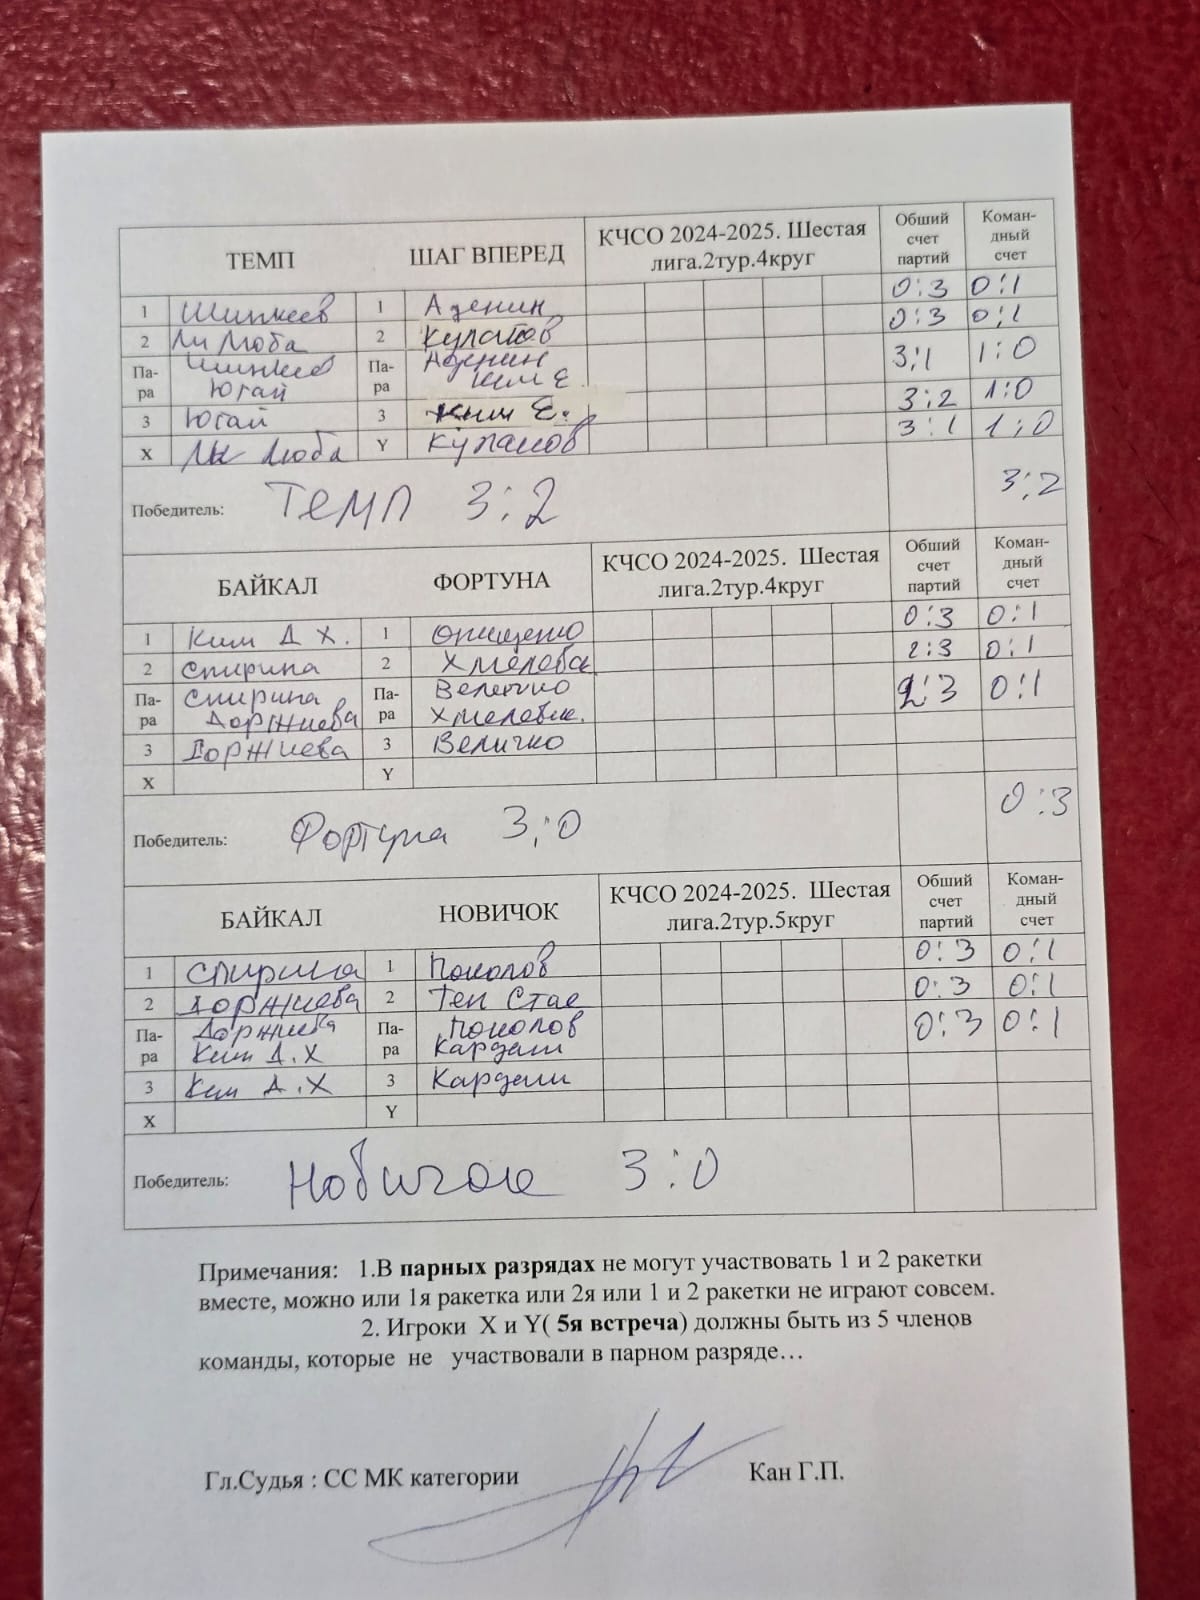 ТЕМП ШАГ ВПЕРЕД КЧСО 2024-2025. Шестая лига.2тур.4круг Обший счет партий Коман-дный счет
1 Шипкеев 1 Аденин 0:3 0:1
2 Ли Люба 2 Кулатов 0:3 0:1
Па-ра Шипкеев Югай Па-ра Аденин Ким Е 3:1 1:0
3 Югай 3 Ким Е. 3:2 1:0
X Ли Люба Y 3:1 1:0
Победитель: ТЕМП 3:2 3:2
БАЙКАЛ ФОРТУНА КЧСО 2024-2025. Шестая лига.2тур.4круг Обший счет партий Коман-дный счет
1 Ким Д Х. 1 Онищенко 0:3 0:1
2 Спирина 2 Хмелевск 2:3 0:1
Па-ра Спирина Доржиева Па-ра Величко Хмелевск. 2:3 0:1
3 Доржиева 3 Величко
X Y
Победитель: Фортуна 3:0 0:3
БАЙКАЛ НОВИЧОК КЧСО 2024-2025. Шестая лига.2тур.5круг Обший счет партий Коман-дный счет
1 Спирина 1 0:3 0:1
2 Доржиева 2 Тен Стас 0:3 0:1
Па-ра Доржиева Ким Д.Х Па-ра Кардаш 0:3 0:1
3 Ким Д.Х 3 Кардаш
X Y
Победитель: Новичок 3:0
Примечания: 1.В парных разрядах не могут участвовать 1 и 2 ракетки
вместе, можно или 1я ракетка или 2я или 1 и 2 ракетки не играют совсем.
2. Игроки X и Y( 5я встреча) должны быть из 5 членов
команды, которые не участвовали в парном разряде…
Гл.Судья : СС МК категории Кан Г.П.